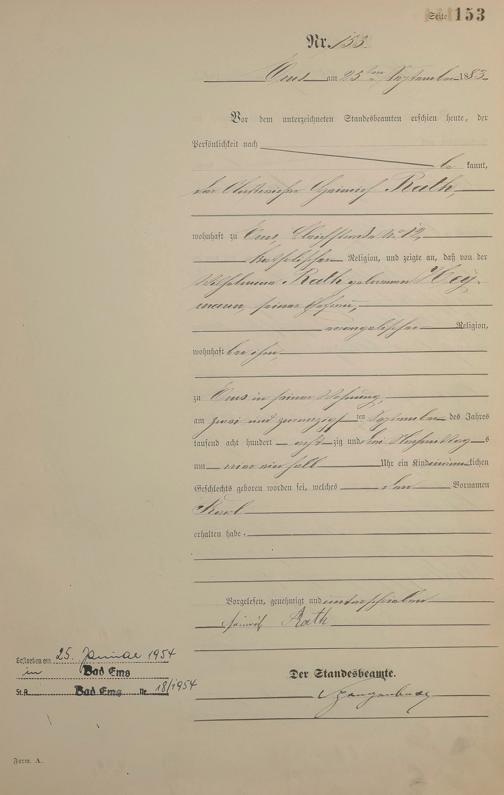 Seite 153
Nr. 153.
Ems am 25ten September 1883.
Vor dem unterzeichneten Standesbeamten erschien heute, der
Persönlichkeit nach
be kannt,
der Heinrich Rath,
wohnhaft zu Ems, No 12,
katholischer Religion, und zeigte an, daß von der
Wilhelmina Rath geborenen Hey-
mann, seiner Ehefrau,
evangelischer Religion,
wohnhaft bei ihm,
zu Ems in seiner Wohnung,
am zwei und zwanzigsten September des Jahres
tausend acht hundert achtzig und drei Nachmittags
um Uhr ein Kind männlichen
Geschlechts geboren worden sei, welches den Vornamen
Karl
erhalten habe.
Vorgelesen, genehmigt und unterschrieben
Heinrich Rath
Gestorben am 25. Januar 1954
in Bad Ems
St.A. Bad Ems Nr. 18/1954
Der Standesbeamte.
Form. A.